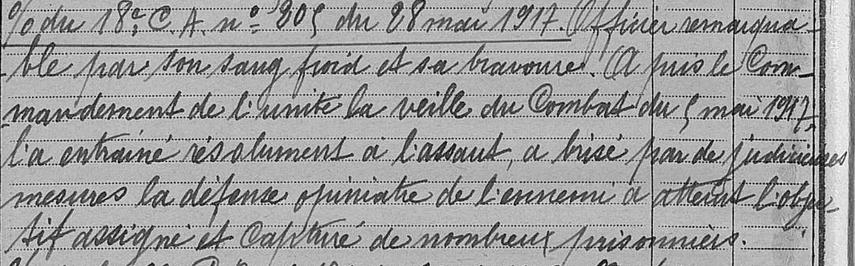 % du 18e C.A. n° 205 du 28 mai 1917. Officier remarqua-
ble par son sang froid et sa bravoure. A pris le Com-
mandement de l'unité la veille du Combat du 5 mai 1917,
l'a entrainé résolument à l'assaut, a brisé par de judicieuses
mesures la défense opiniatre de l'ennemi a atteint l'objec-
tif assigné et capturé de nombreux prisonniers.